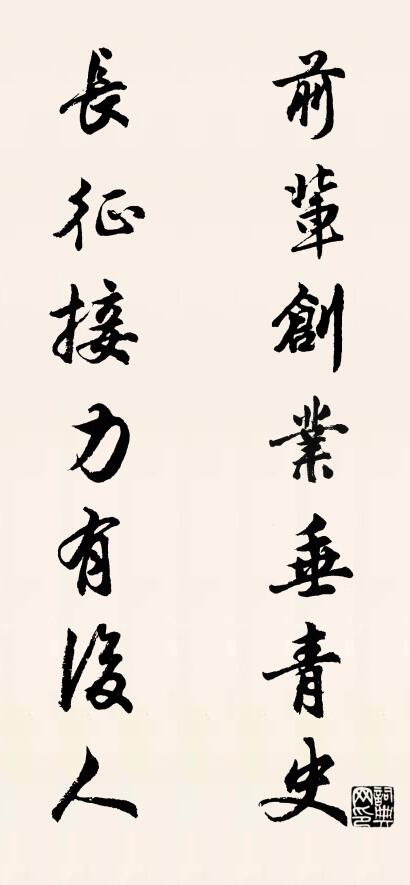 前輩創業垂青史
長征接力有後人
詞典網印